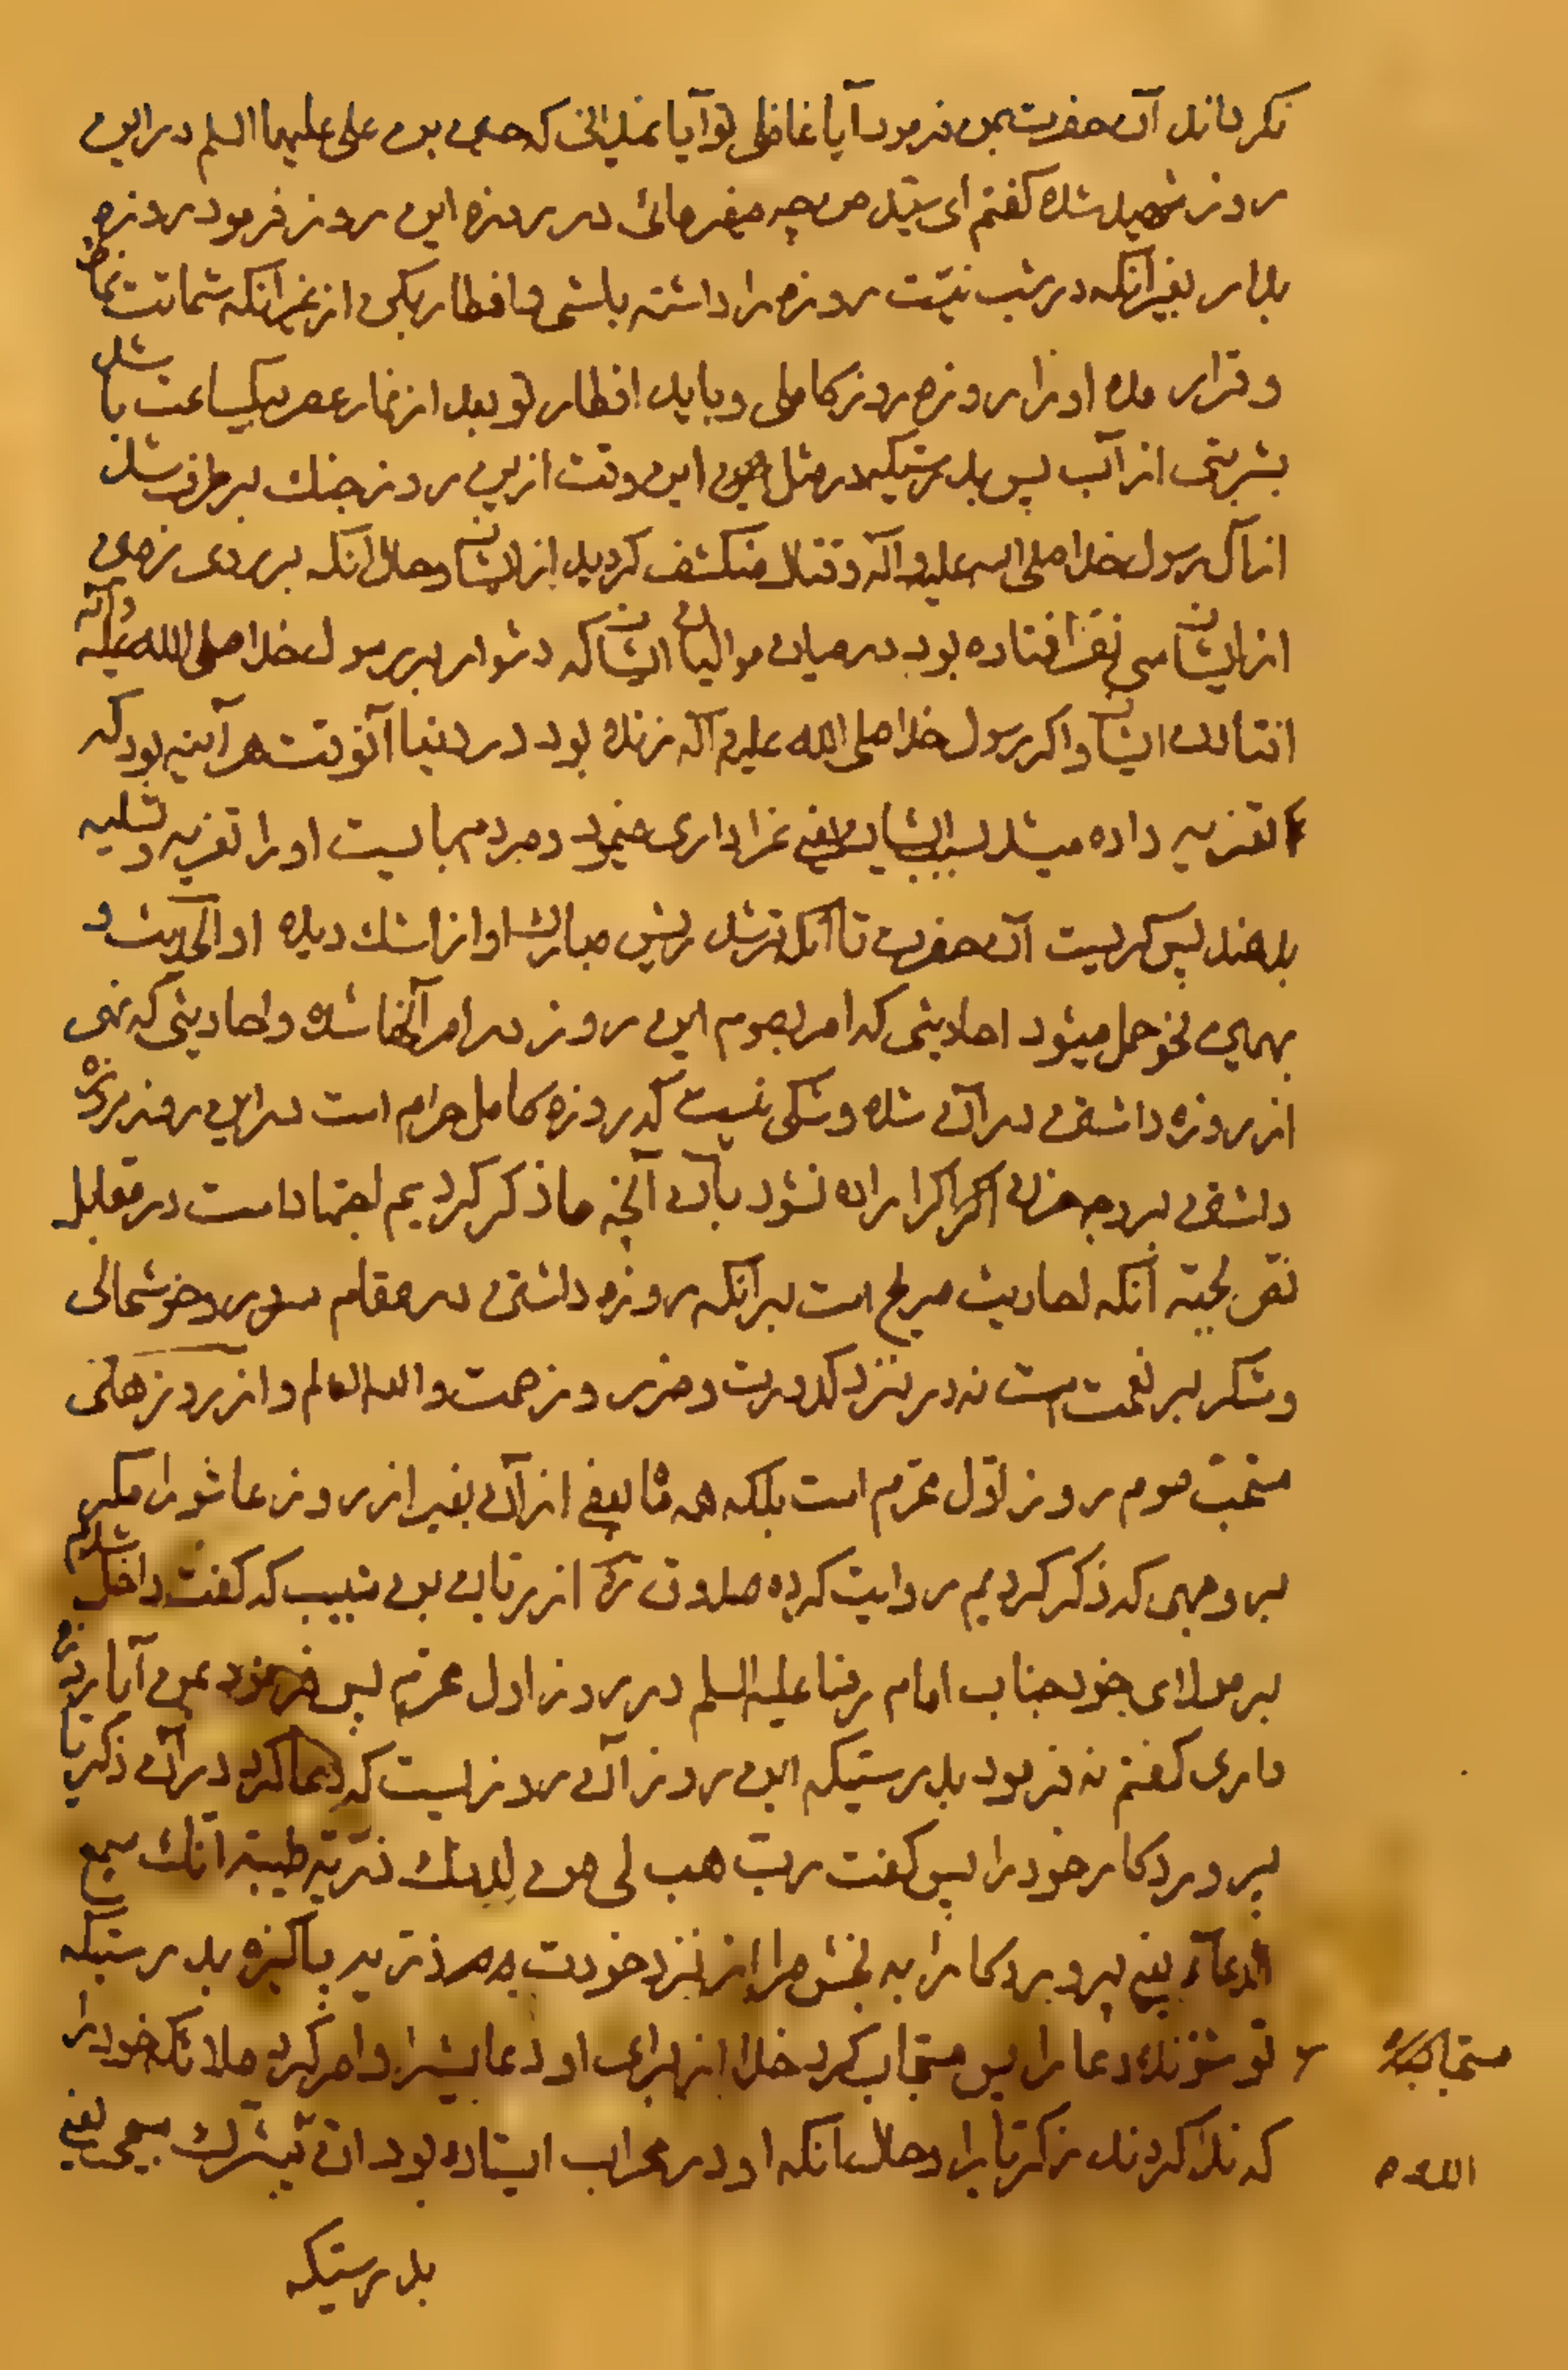 نکرداند آن حضرت بمن فرمود آیا غافلی تو آیا نمیدانی که حسین بن علی علیهما السلم در این
روز شهید شده کفتم ای سید من چه میفرمائی در روزه این روز فرمود روزه
بدار بغیر آنکه در شب نیّت روزه را داشته باشی و افطار بکن از غیر انکه شماتت
و قرار مده او را روزه روز کامل و باید افطار تو بعد از نماز عصر بیکساعت باشد
بشربتی از آب پس بدرستیکه در مثل این وقت ازین روز جنك بر طرف شد
از آل رسول خدا صلی الله علیه و اله و قتال منکشف کردید از ایشان و حال انکه بر روی زمین
از ایشان سی نفر افتاده بود در میان موالیان ایشان که دشوار بر رسول خدا صلی الله علیه وآله
افتادن ایشان و اکر رسول خدا صلی الله علیه و آله زنده بود در دنیا آنوقت هر آینه بود که
تعزیه داده میشد بسبب ایشان یعنی عزاداری مینمود و مردم میبایست او را تعزیه و تسلیه
بدهند پس کریست آن حضرت تا آنکه تر شد ریش مبارك او از اشك دیده او الحدیث و
بهمین نحو حمل میشود احادیثی که امر بصوم این روز در امر آنها شده و احادیثی که نهی
از روزه داشتن در آن شده و شکی نیست که روزه کامل حرام است در این روز
داشتن بر وجه حزن اکر اراده نشود بآن آنچه ما ذکر کردیم اجتهاد است در مقابل
نص بجهة آنکه احادیث صریح است بر آنکه روزه داشتن در مقام سرور و خوشحالی
و شکر بر نعمت است نه در نزد کدورت و ضرر و زحمت والله العالم و از روزهای
مستحب صوم روز اوّل محرّم است بلکه همه ما بقی از آن بغیر از روز عاشورا مکر
بر وجهی که ذکر کردیم روایت کرده صدوق ره از ریان بن شبیب که کفت داخل شدم
بر مولای خود جناب امام رضا علیه السلم در روز اول محرّم پس فرمود بمن آیا روزه
داری کفتم نه فرمود بدرستیکه این روز آن روزیست که دعا کرد در آن ذکریا
پروردکار خود را پس کفت ربّ هب لی من لدنك ذریّة طیبة انّك سمیع
الدعآء یعنی پروردکارا به بخش مرا از نزد خودت ذریه پاکیزه بدرستیکه
تو شنونده دعا را پس مستجاب کرد خدا از برای او دعایش را و امر کرد ملائکه خود را
که ندا کردند زکریا را و حال انکه او در محراب ایستاده بود انّ یبشّرك بیحیی یعنی
الله
بدرستیکه